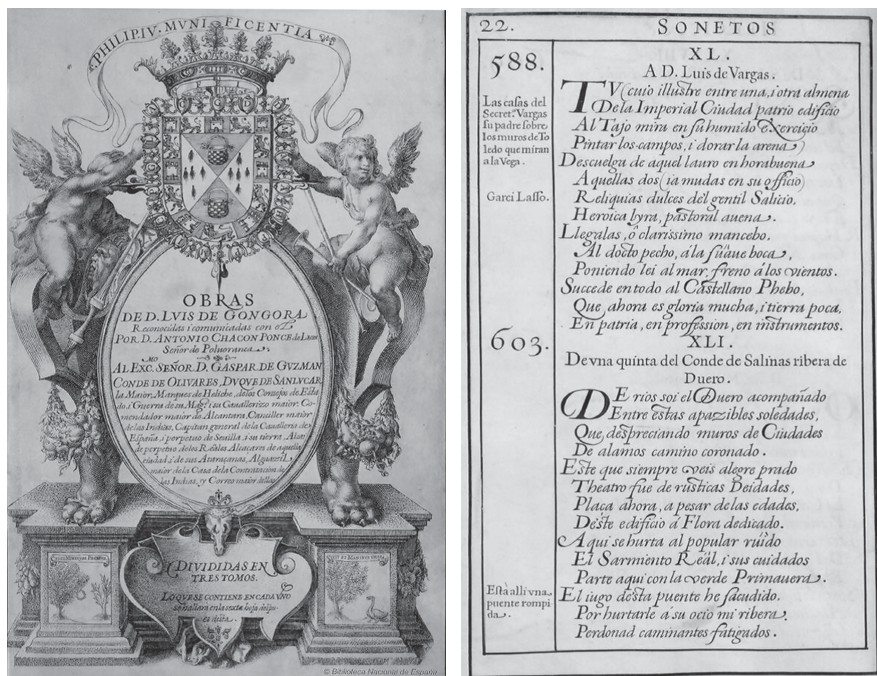 PHILIPI IV. MVNIFICENTIA
OBRAS
DE D. LVIS DE GONGORA
Reconocidas i comunicadas con el
POR D. ANTONIO CHACON PONCE de Leon
Señor de Poluoranca.
AL EXC.MO SEÑOR D. GASPAR DE GUZMAN
CONDE DE OLIVARES, DVQVE DE SANLVCAR
la Maior, Marques de Heliche, de los Consejos de Esta
do i Guerra de su Magd i su Cauallerizo maior, Co-
mendador maior de Alcantara, Canciller maior
de las Indias, Capitan general de la Caualleria de
España, i perpetuo de Seuilla i su tierra, Alcaide
perpetuo de los Reales Alcaçares de aquella
ciudad i de sus Ataraçanas, Alguazil
maior de la Casa de la Contratacion de
las Indias, y Correo maior dellas.
DIVIDIDAS EN
TRES TOMOS.
LO QVE SE CONTIENE EN CADA VNO
se hallara en la sexta
© Biblioteca Nacional de España
22. SONETOS
588.
XL.
A D. Luis de Vargas.
Las casas del
Secret.º Vargas
su padre sobre
los muros de To
ledo que miran
a la Vega.
TV (cuio illustre entre una, i otra almena
De la Imperial Ciudad patrio edificio
Al Tajo mira en su humido Exercicio
Pintar los campos, i dorar la arena)
Descuelga de aquel lauro en horabuena
Aquellas dos (ia mudas en su officio)
Garci Lasso.
Reliquias dulces del gentil Salicio,
Heroica lyra, pastoral auena.
Llegalas, ô clarissimo mancebo.
Al docto pecho, á la süaue boca,
Poniendo lei al mar, freno á los vientos.
Succede en todo al Castellano Phebo,
Que ahora es gloria mucha, i tierra poca,
En patria, en profession, en instrumentos.
603.
XLI.
De vna quinta del Conde de Salinas ribera de
Duero.
DE rios soi el Duero acompañado
Entre estas apazibles soledades,
Que, despreciando muros de Ciudades
De alamos camino coronado.
Este que siempre veis alegre prado
Theatro fue de rusticas Deidades,
Plaça ahora, a pesar de las edades,
Deste edificio â Flora dedicado.
Aqui se hurta al popular rüido
El Sarmiento Reäl, i sus cuidados
Parte aqui con la verde Primauera.
Està alli vna
puente rompi
da.
El iugo desta puente he sacudido.
Por hurtarle á su ocio mi ribera,
Perdonad caminantes fatigados.